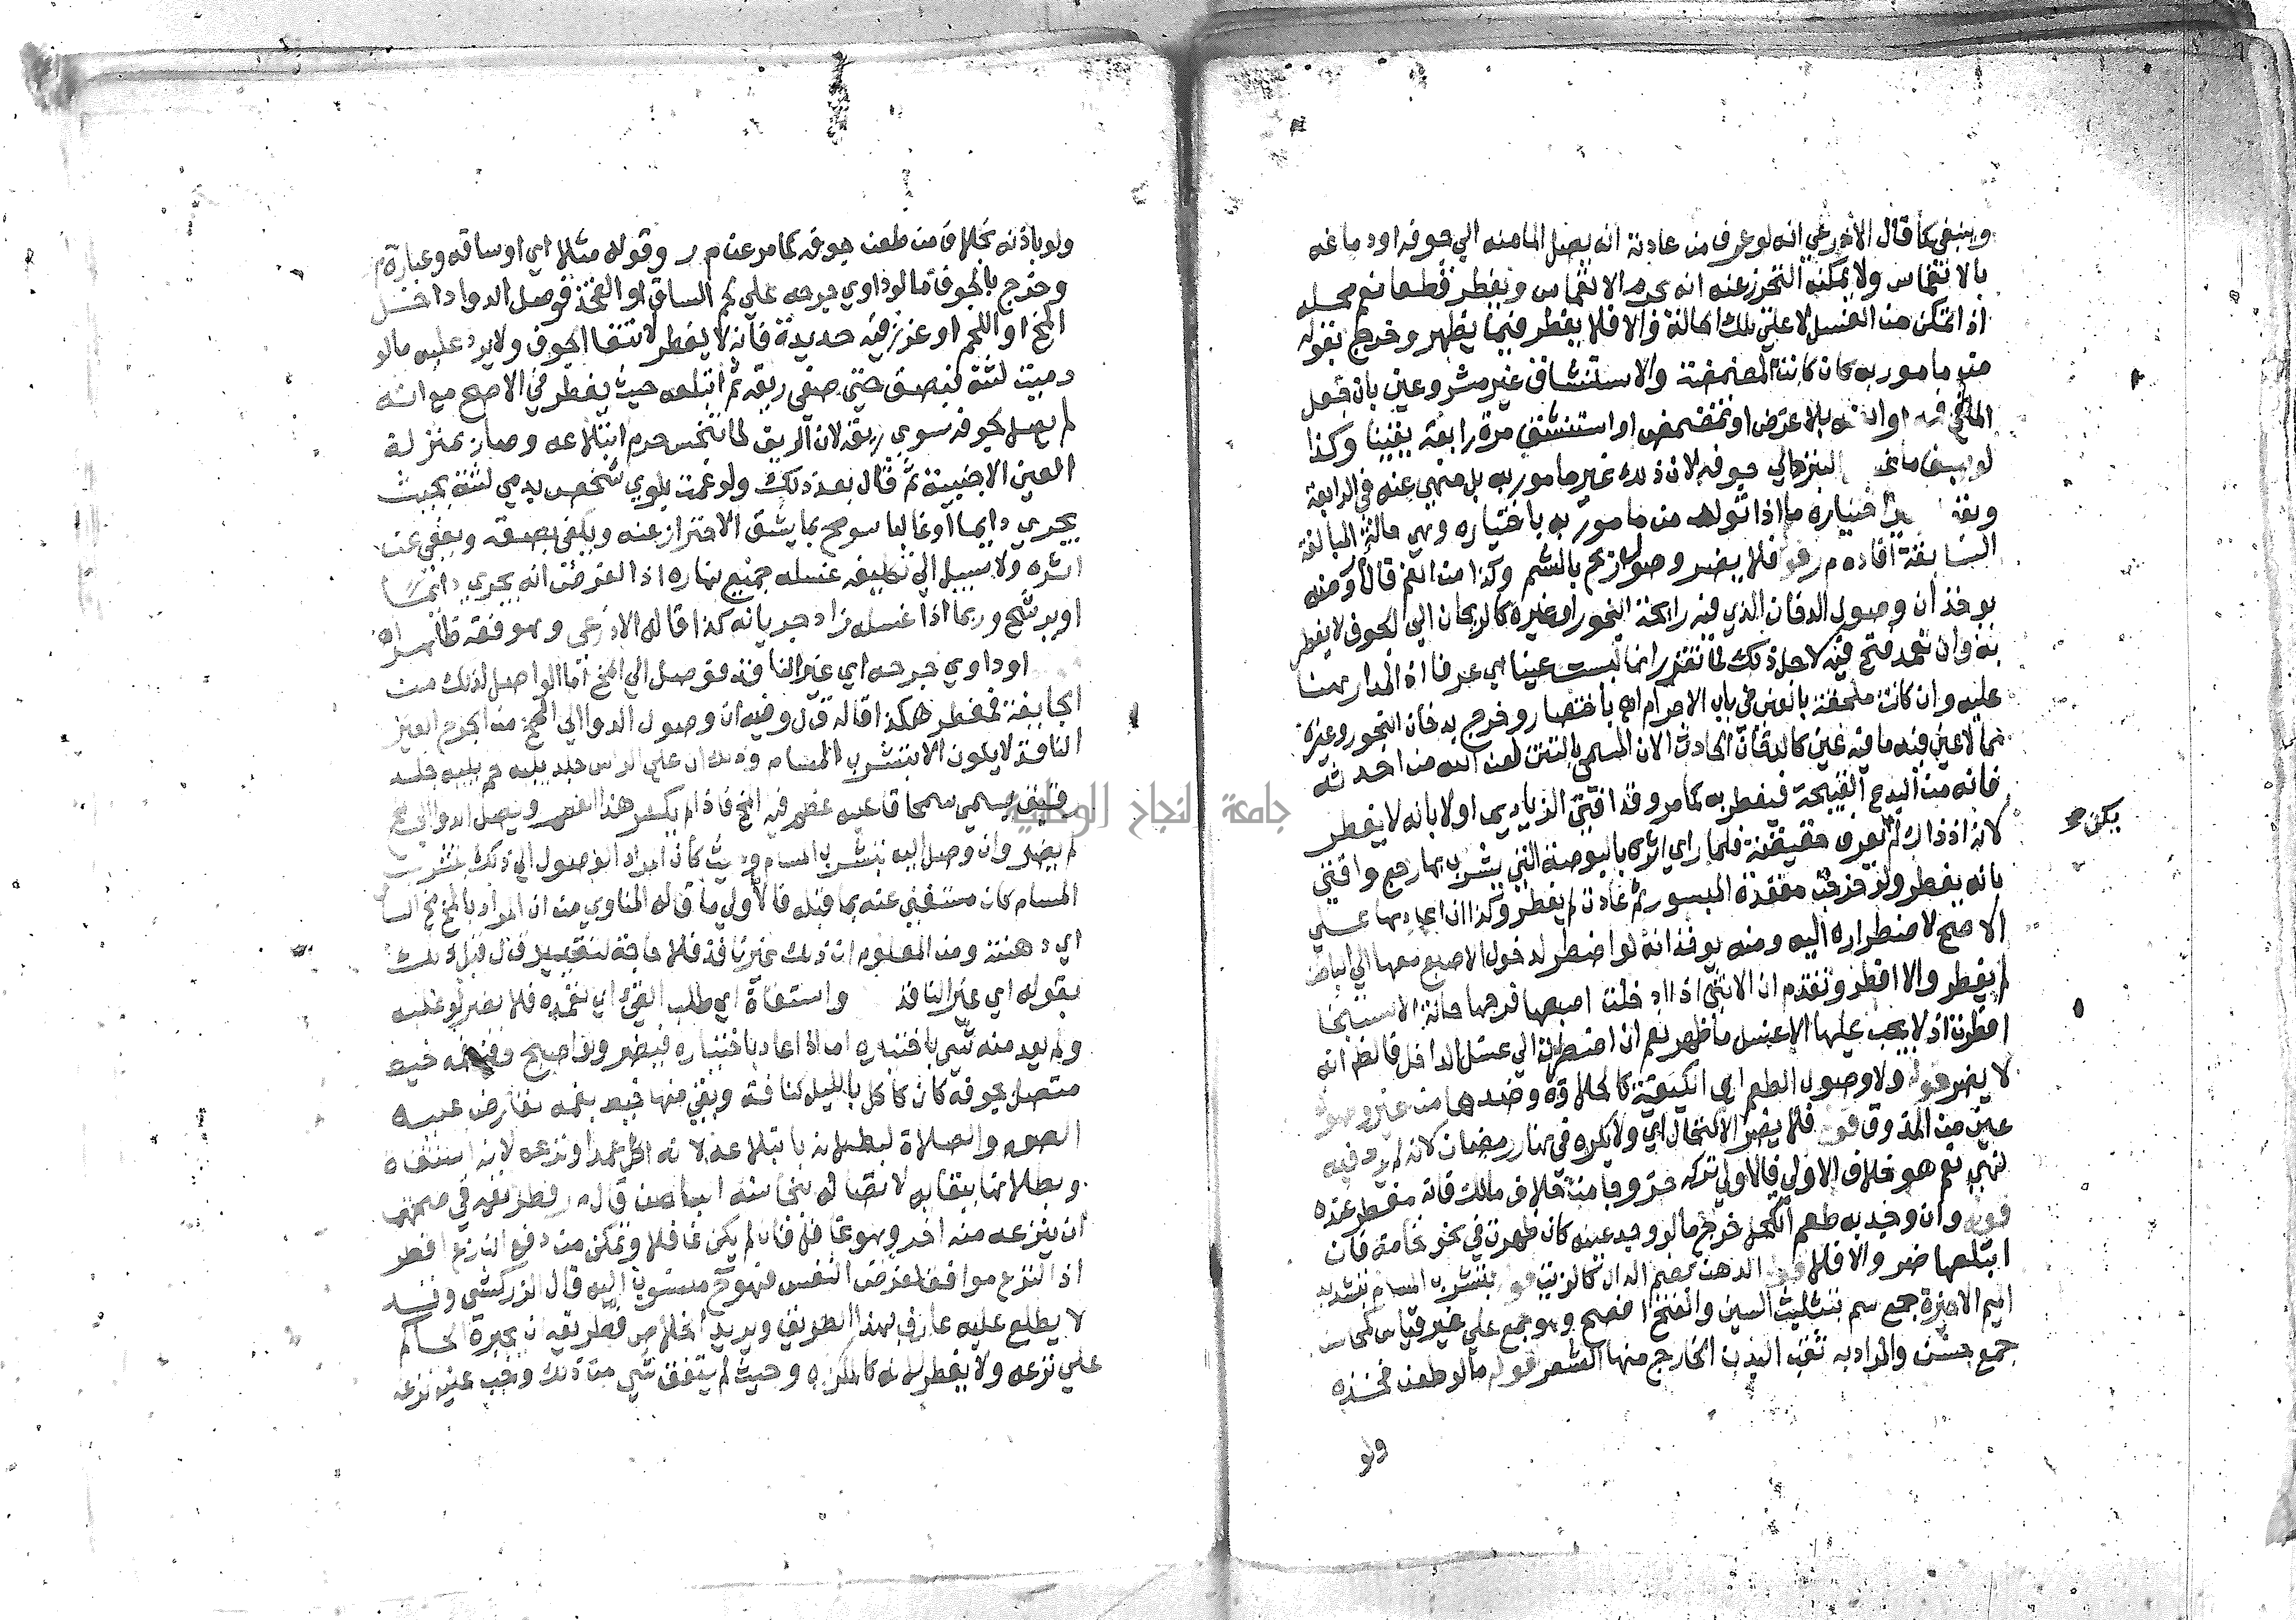 وينبغي كما قال الأذرعي انه لو عرف من عادته انه يصل الما منه الي جوفه او دماغه
بالانغماس ولا يمكنه التحرز عنه انه يحرم الانغماس ويفطر قطعا نعم محله
اذا تمكن من الغسل لا علي تلك الحالة والا فلا يفطر فيما يظهر وخرج بقوله
من مامور به كان كانت المضمضة والاستنشاق غير مشروعين بان جعل
الما في فمه او انفه بلا غرض او تمضمض او استنشق مرة رابعة يقينا وكذا
لو سبق ما غسل التبرد الي جوفه لان ذلك غير مامور به بل منهي عنه في الرابعة
اختياره ما اذا تولد من مامور به باختياره وهي حالة المبالغة
السابقة افاده م ر قوله فلا يضر وصول الريح بالشم وكذا من الفم قال ومنه
يوخذ ان وصول الدخان الذي فيه رائحة البخور او غيره كالريحان الي الجوف لا يفطر
به وان تعمد فتح فيه لاجل ذلك لما تقرر انها ليست عينا اي عرفا اذ المدار هنا
عليه وان كانت ملحقة بالعين في باب الاحرام اه باختصار وخرج بدخان البخور وغيره
مما لا عين فيه ما فيه عين كالدخان الحادث الان المسمي بالتتن لعن الله من احدثه
فانه من البدع القبيحة فيفطر به كما مر وقد افتي الزيادي اولا بانه لا يفطر
يكن
لانه اذ ذاك لم يعرف حقيقته فلما راي اثره بالبوصة التي يشرب بها رجع وافتي
بانه يفطر ولو خرجت مقعدة المبسور ثم عادت لم يفطر وكذا ان اعادها علي
الاصح لاضطراره اليه ومنه يوخذ انه لو اضطر لدخول الاصبع معها الي الباطن
لم يفطر والا افطر وتقدم ان الانثي اذا ادخلت اصبعها فرجها حالة الاستنجا
افطرت اذ لا يجب عليها الا غسل ما ظهر نعم ان اضطرت الي غسل الداخل فالظاهر انه
لا يضر قوله ولا وصول الطعم اي الكيفية كالحلاوة وضدها من غير وصول
عين من المذوق قوله فلا يضر الاكتحال اي ولا يكره في نهار رمضان لانه لم يرد فيه
نهي نعم هو خلاف الاولي فالاولي تركه خروجا من خلاف مالك فانه مفطر عنده
قوله وان وجد به طعم الكحل خرج ما لو وجد عينه كان ظهرت في نحو نخامة فان
ابتلعها ضر والا فلا قوله الدهن بضم الدال كالزيت قوله بتشرب المسام بتشديد
الميم الاخيرة جمع سم بتثليث السين والفتح افصح وهو جمع علي غير قياس كمحاسن
جمع حسن والمراد به ثقب البدن الخارج منها الشعر قوله ما لو طعن فخذه
ولو
ولو باذنه بخلاف من طعن جوفه كما مر عن م ر وقوله مثلا اي او ساقه وعبارة م ر
وخرج بالجوف ما لو داوي جرحه علي لحم الساق او الفخذ فوصل الدوا داخل
المخ او اللحم او غرز فيه حديدة فانه لا يفطر لانتفا الجوف ولا يرد عليه ما لو
دميت لثته فبصق حتي صفي ريقه ثم ابتلعه حيث يفطر في الاصح مع انه
لم يصل لجوفه سوي ريقه لان الريق لما تنجس حرم ابتلاعه وصار بمنزلة
العين الاجنبية ثم قال بعد ذلك ولو عمت بلوي شخص بدمي لثته بحيث
يجري دايما او غالبا سومح بما يشق الاحتراز عنه ويكفي بصقه ويعفي عن
اثره ولا سبيل الي تكليفه غسله جميع نهاره اذ الفرض انه يجري دائما
او يرشح وربما اذا غسله زاد جريانه كذا قاله الاذرعي وهو فقه ظاهر
او داوي جرحه اي غير النافذ فوصل الي المخ اما الواصل لذلك من
الجايفة فمفطر هكذا قاله ق ل وفيه ان وصول الدوا الي المخ من الجرح الغير
النافذ لا يكون الا بتشرب المسام وذلك ان علي الراس جلد يليه لحم يليه جلد
رقيق يسمي سمحاقا يليه عظم فيه المخ فاذا لم يكسر هذا العظم ويصل الدوا الي المخ
لم يضر وان وصل اليه بتشرب المسام وحيث كان المراد الوصول الي ذلك بتشرب
المسام كان مستغني عنه بما قبله فالاولي ما قاله المناوي من ان المراد بالمخ مخ الساق
اي دهنته ومن المعلوم ان ذلك غير نافذ فلا حاجة لتقييد ق ل قبل ذلك
بقوله اي غير النافذ واستقاة اي طلب القيء اي تعمده فلا يضر لو غلبه
ولم يعد منه شي باختياره اما اذا اعاد باختياره فيضر ولو اصبح وفي فمه خيط
متصل بجوفه كان كاكل بالليل كنافة وبقي منها خيط بفمه تعارض عليه
الصوم والصلاة لبطلانه بابتلاعه لانه اكل عمدا ونزعه لانه استقاة
وبطلانها ببقايه لاتصاله بنجاسة الباطن قال م ر فطريقه في صحتهما
ان ينزعه منه اخر وهو غافل فان لم يكن غافلا وتمكن من دفع النازع افطر
اذ النزع موافق لغرض النفس فهو منسوب اليه قال الزركشي وقد
لا يطلع عليه عارف بهذا الطريق ويريد الخلاص فطريقه ان يجبره الحاكم
علي نزعه ولا يفطر لانه كالمكره وحيث لم يتفق شي من ذلك وجب عليه نزعه